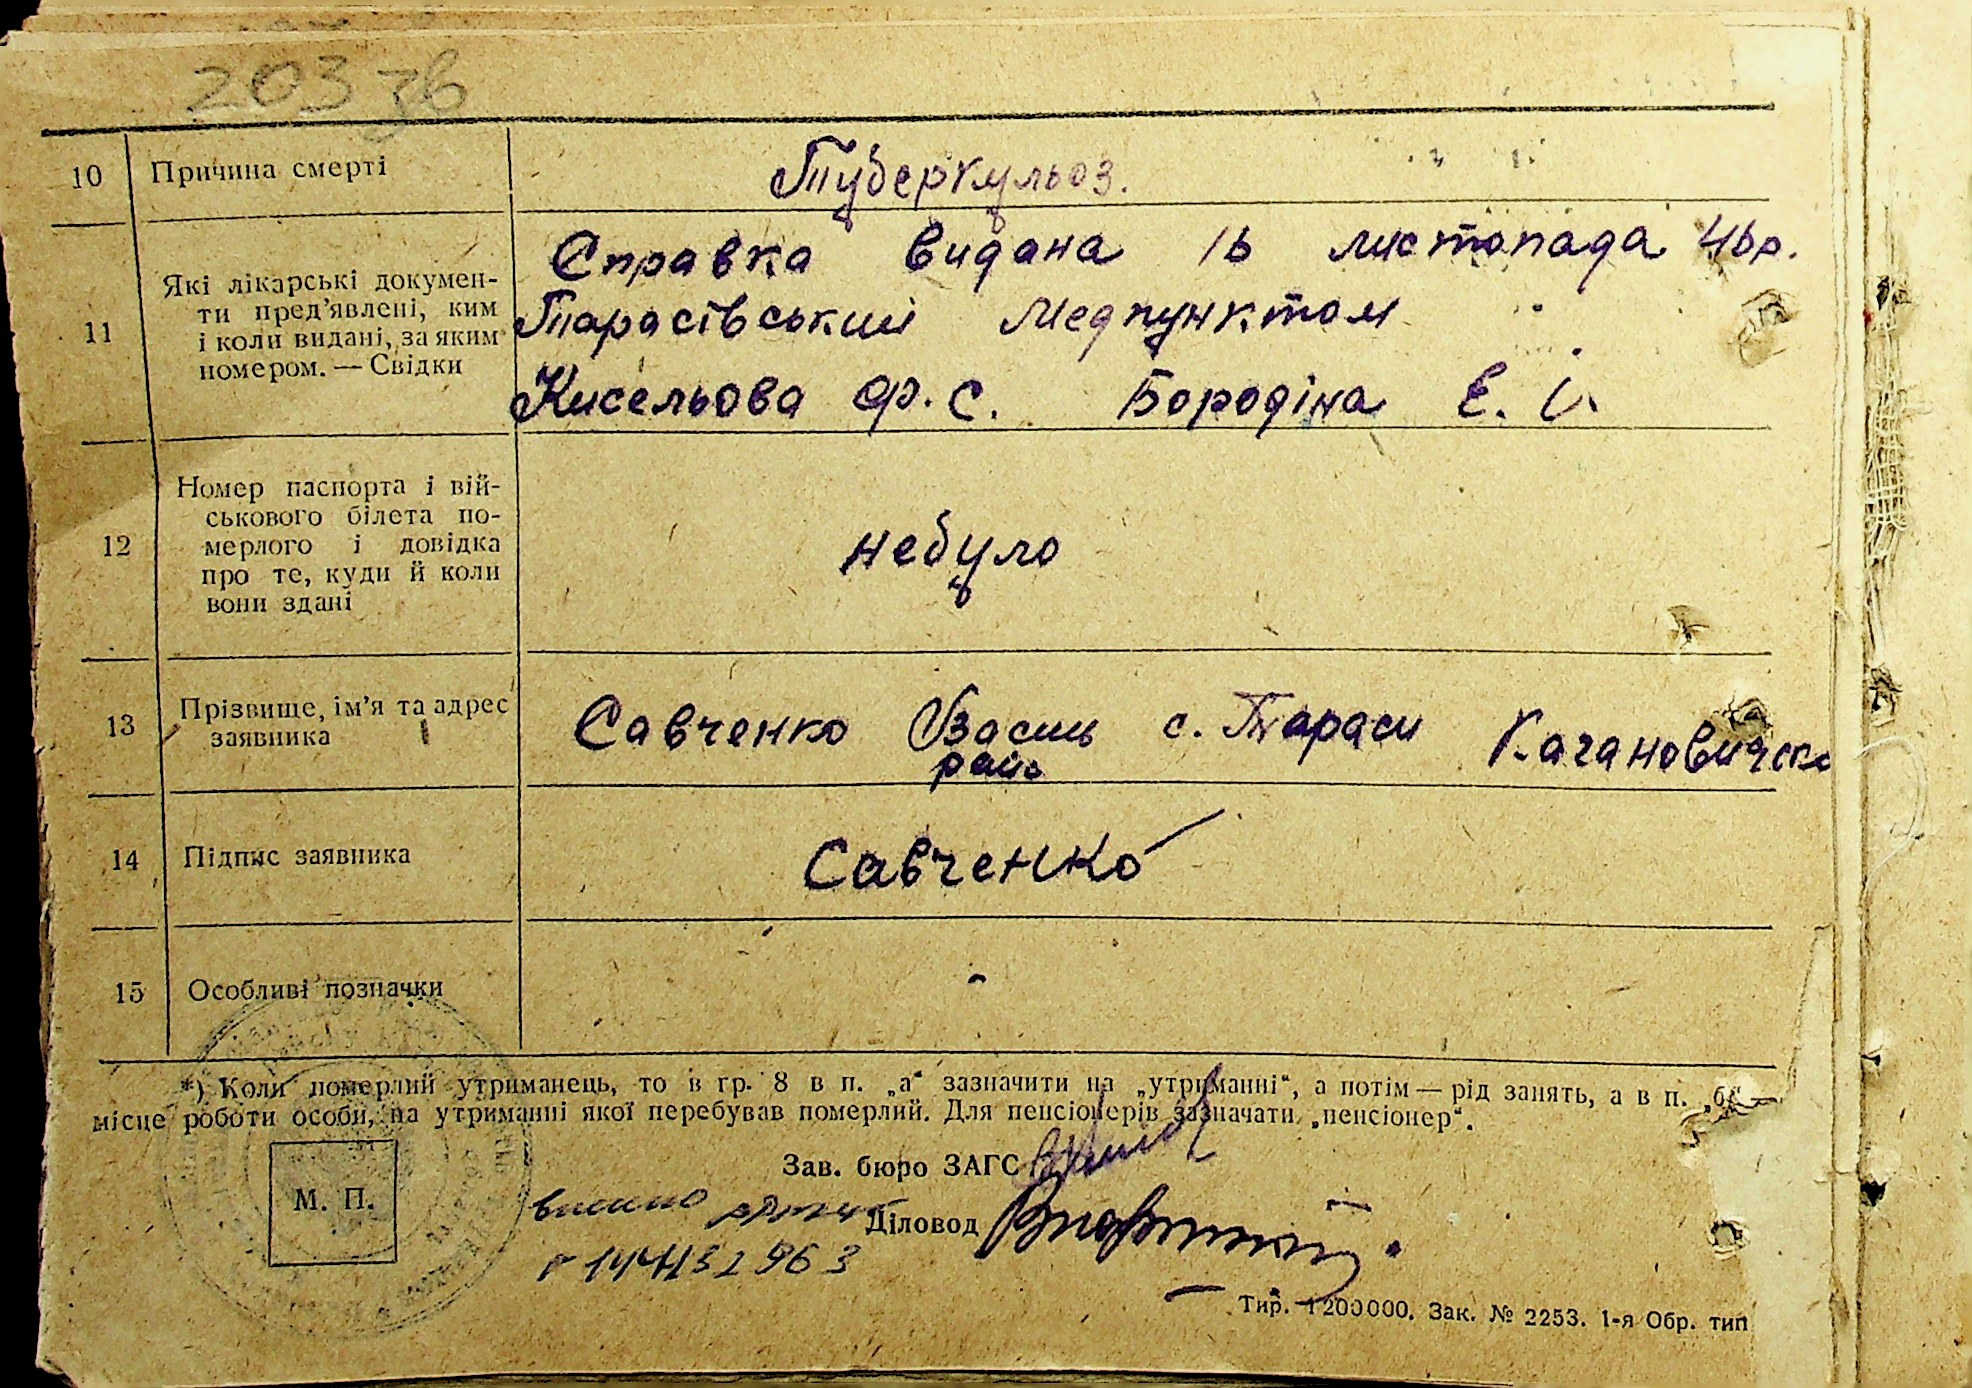 203 зв
10 Причина смерті Туберкульоз.
11 Які лікарські докумен-
ти пред’явлені, ким
і коли видані, за яким
номером. — Свідки
Справка видана 16 листопада 46р.
Тарасівський медпунктом
Кисельова Ф. С. Бородіна Є. І.
12 Номер паспорта і вій-
ськового білета по-
мерлого і довідка
про те, куди й коли
вони здані
небуло
13 Прізвище, ім’я та адрес
заявника
Савченко Василь с. Тараси Кагановичско
райо
14 Підпис заявника Савченко
15 Особливі позначки -
*) Коли померлий утриманець, то в гр. 8 в п. „а“ зазначити на „утриманні“, а потім — рід занять, а в п. „б“ —
місце роботи особи, на утриманні якої перебував померлий. Для пенсіонерів зазначати „пенсіонер“.
Зав. бюро ЗАГС
М. П.
Діловод
Тир. 1200000. Зак. № 2253. 1-я Обр. тип